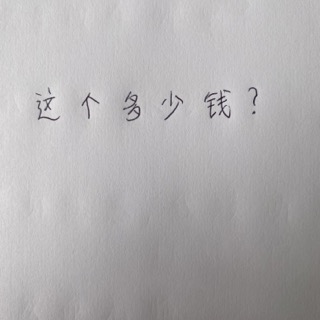 这个多少钱?